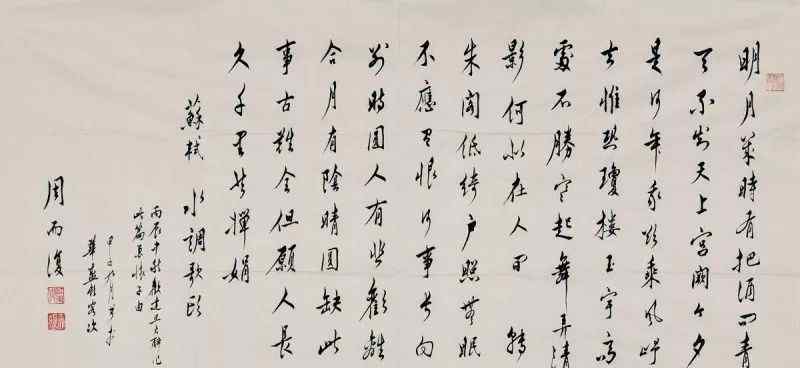 明月幾時有把酒問青
天不知天上宮闕今夕
是何年我欲乘風歸
去惟恐瓊樓玉宇高
處不勝寒起舞弄清
影何似在人間轉
朱閣低綺戶照無眠
不應有恨何事長向
別時圓人有悲歡離
合月有陰晴圓缺此
事古難全但願人長
久千里共嬋娟
蘇軾 水調歌頭
丙辰中秋歡飲達旦大醉作
此篇兼懷子由
周而復